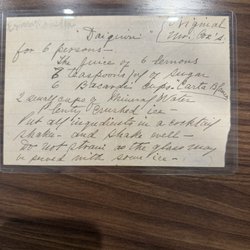 "Daiquiri" (Original
Mr. Cox's
for 6 persons—
The juice of 6 lemons
6 teaspoonsful of sugar
6 Bacardi cups "Carta Blanca"
2 small cups of Mineral Water
Plenty crushed ice—
Put all ingredients in a cocktail
shaker— and shake well—
Do not strain as the glass may
be served with some ice—